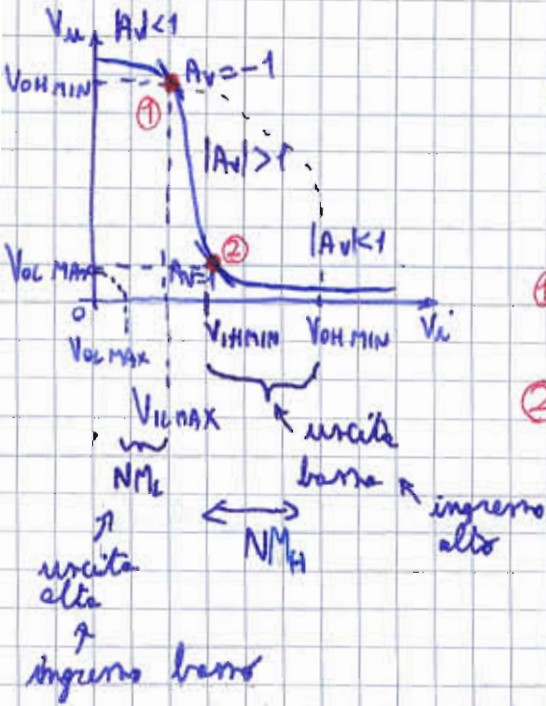 Vu |Av|<1
VOHMIN Av=-1
①
|Av|>1
②
|Av|<1
VOLMAX Av=-1
0
VOLMAX VIHMIN VOHMIN Vi
①
VILMAX
②
uscita
bassa
NML
ingresso
alto
NMH
uscita
alta
ingresso basso